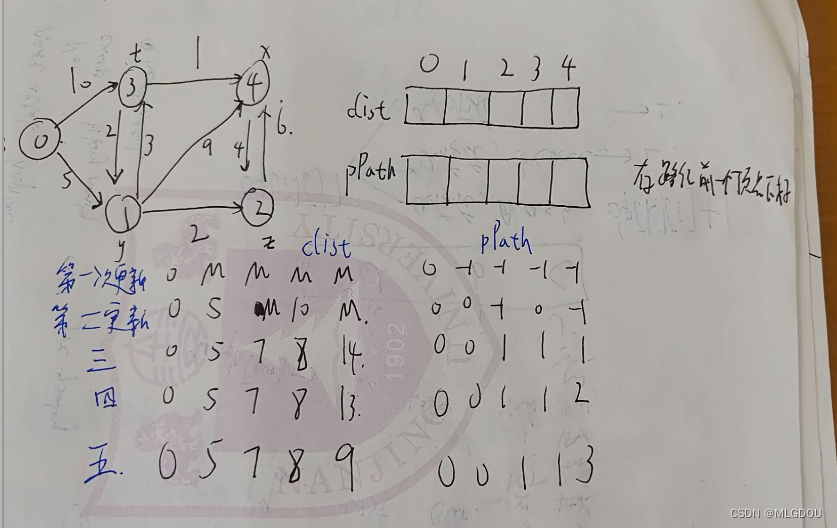 t 1 x
10 3 4
0 2 3 9 4 6.
5 1 2 2
y z
0 1 2 3 4
dist
pPath 存路径前一个顶点下标
dist pPath
第一次更新 0 M M M M 0 -1 -1 -1 -1
第二更新 0 5 M 10 M. 0 0 -1 0 -1
三 0 5 7 8 14. 0 0 1 1 1
四 0 5 7 8 13. 0 0 1 1 2
五. 0 5 7 8 9 0 0 1 1 3
UNIVERSITY
1902
NANJING
CSDN @MLGDOU